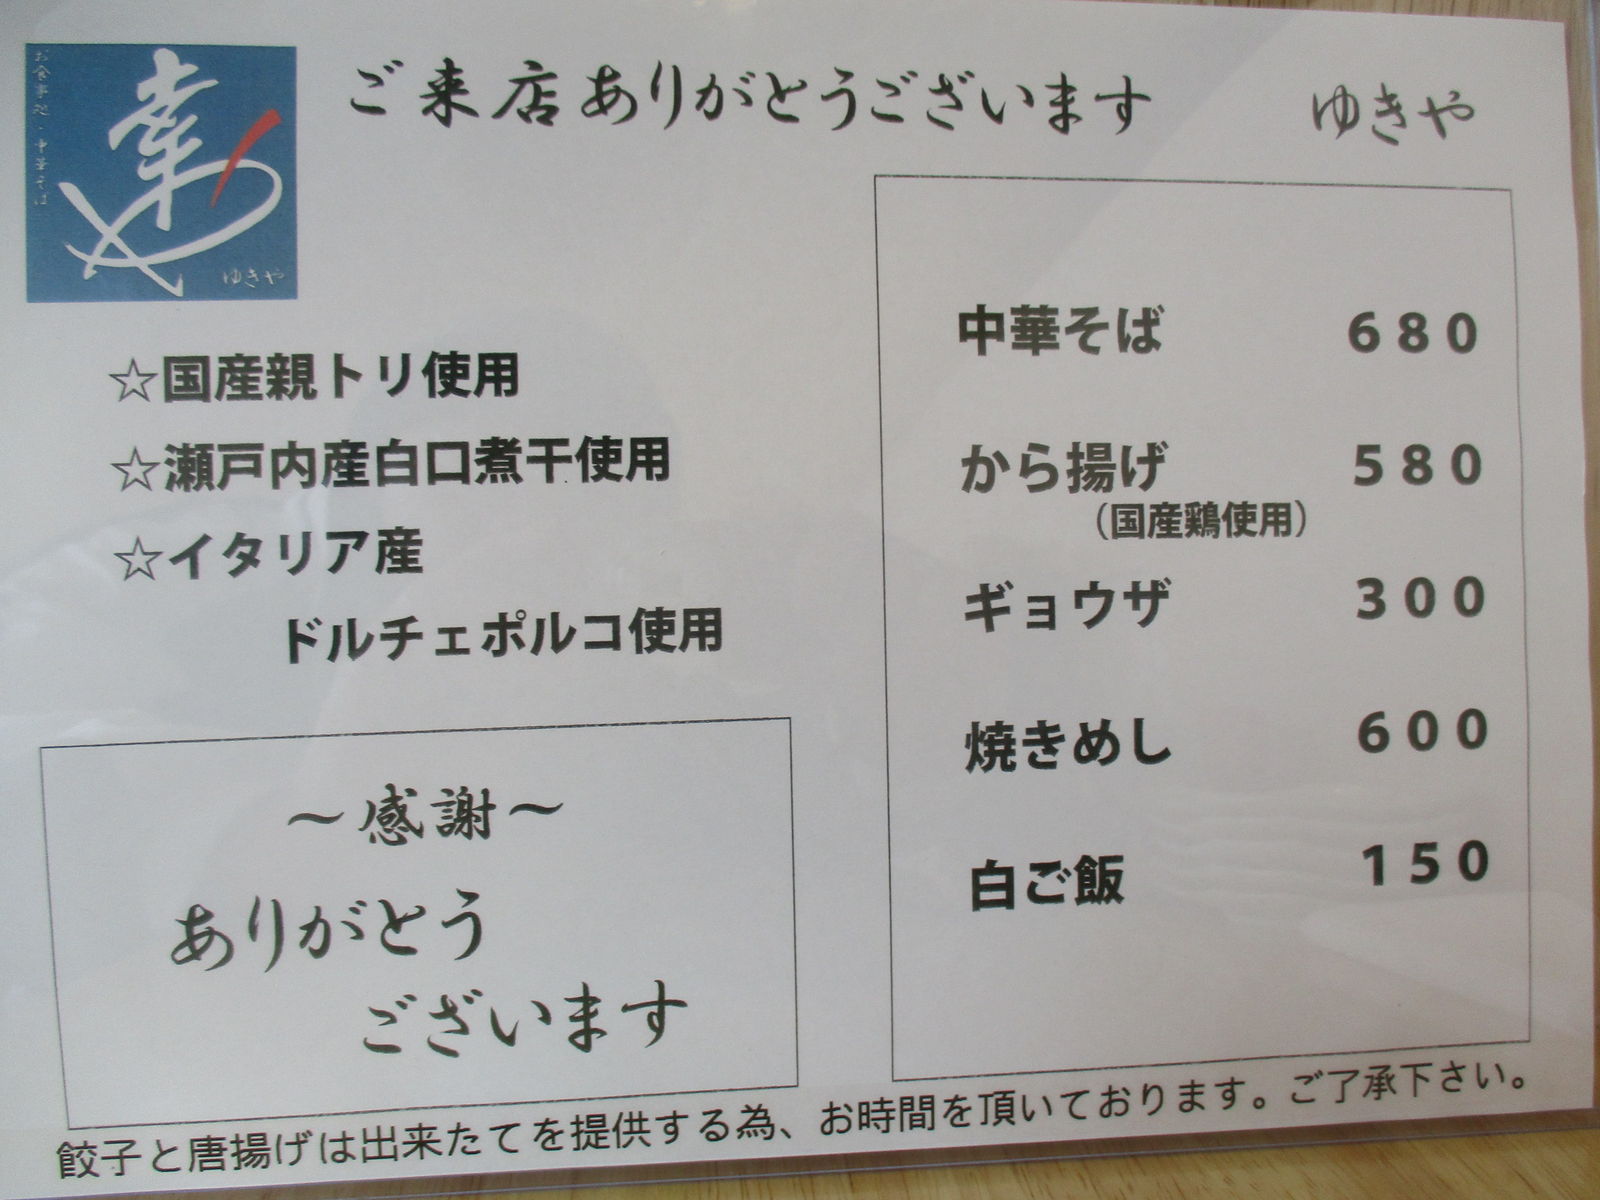 お食事処・中華そば
幸
ゆきや
ご来店ありがとうございます
ゆきや
☆国産親トリ使用
☆瀬戸内産白口煮干使用
☆イタリア産
ドルチェポルコ使用
～感謝～
ありがとう
ございます
中華そば 680
から揚げ 580
（国産鶏使用）
ギョウザ 300
焼きめし 600
白ご飯 150
餃子と唐揚げは出来たてを提供する為、お時間を頂いております。ご了承下さい。